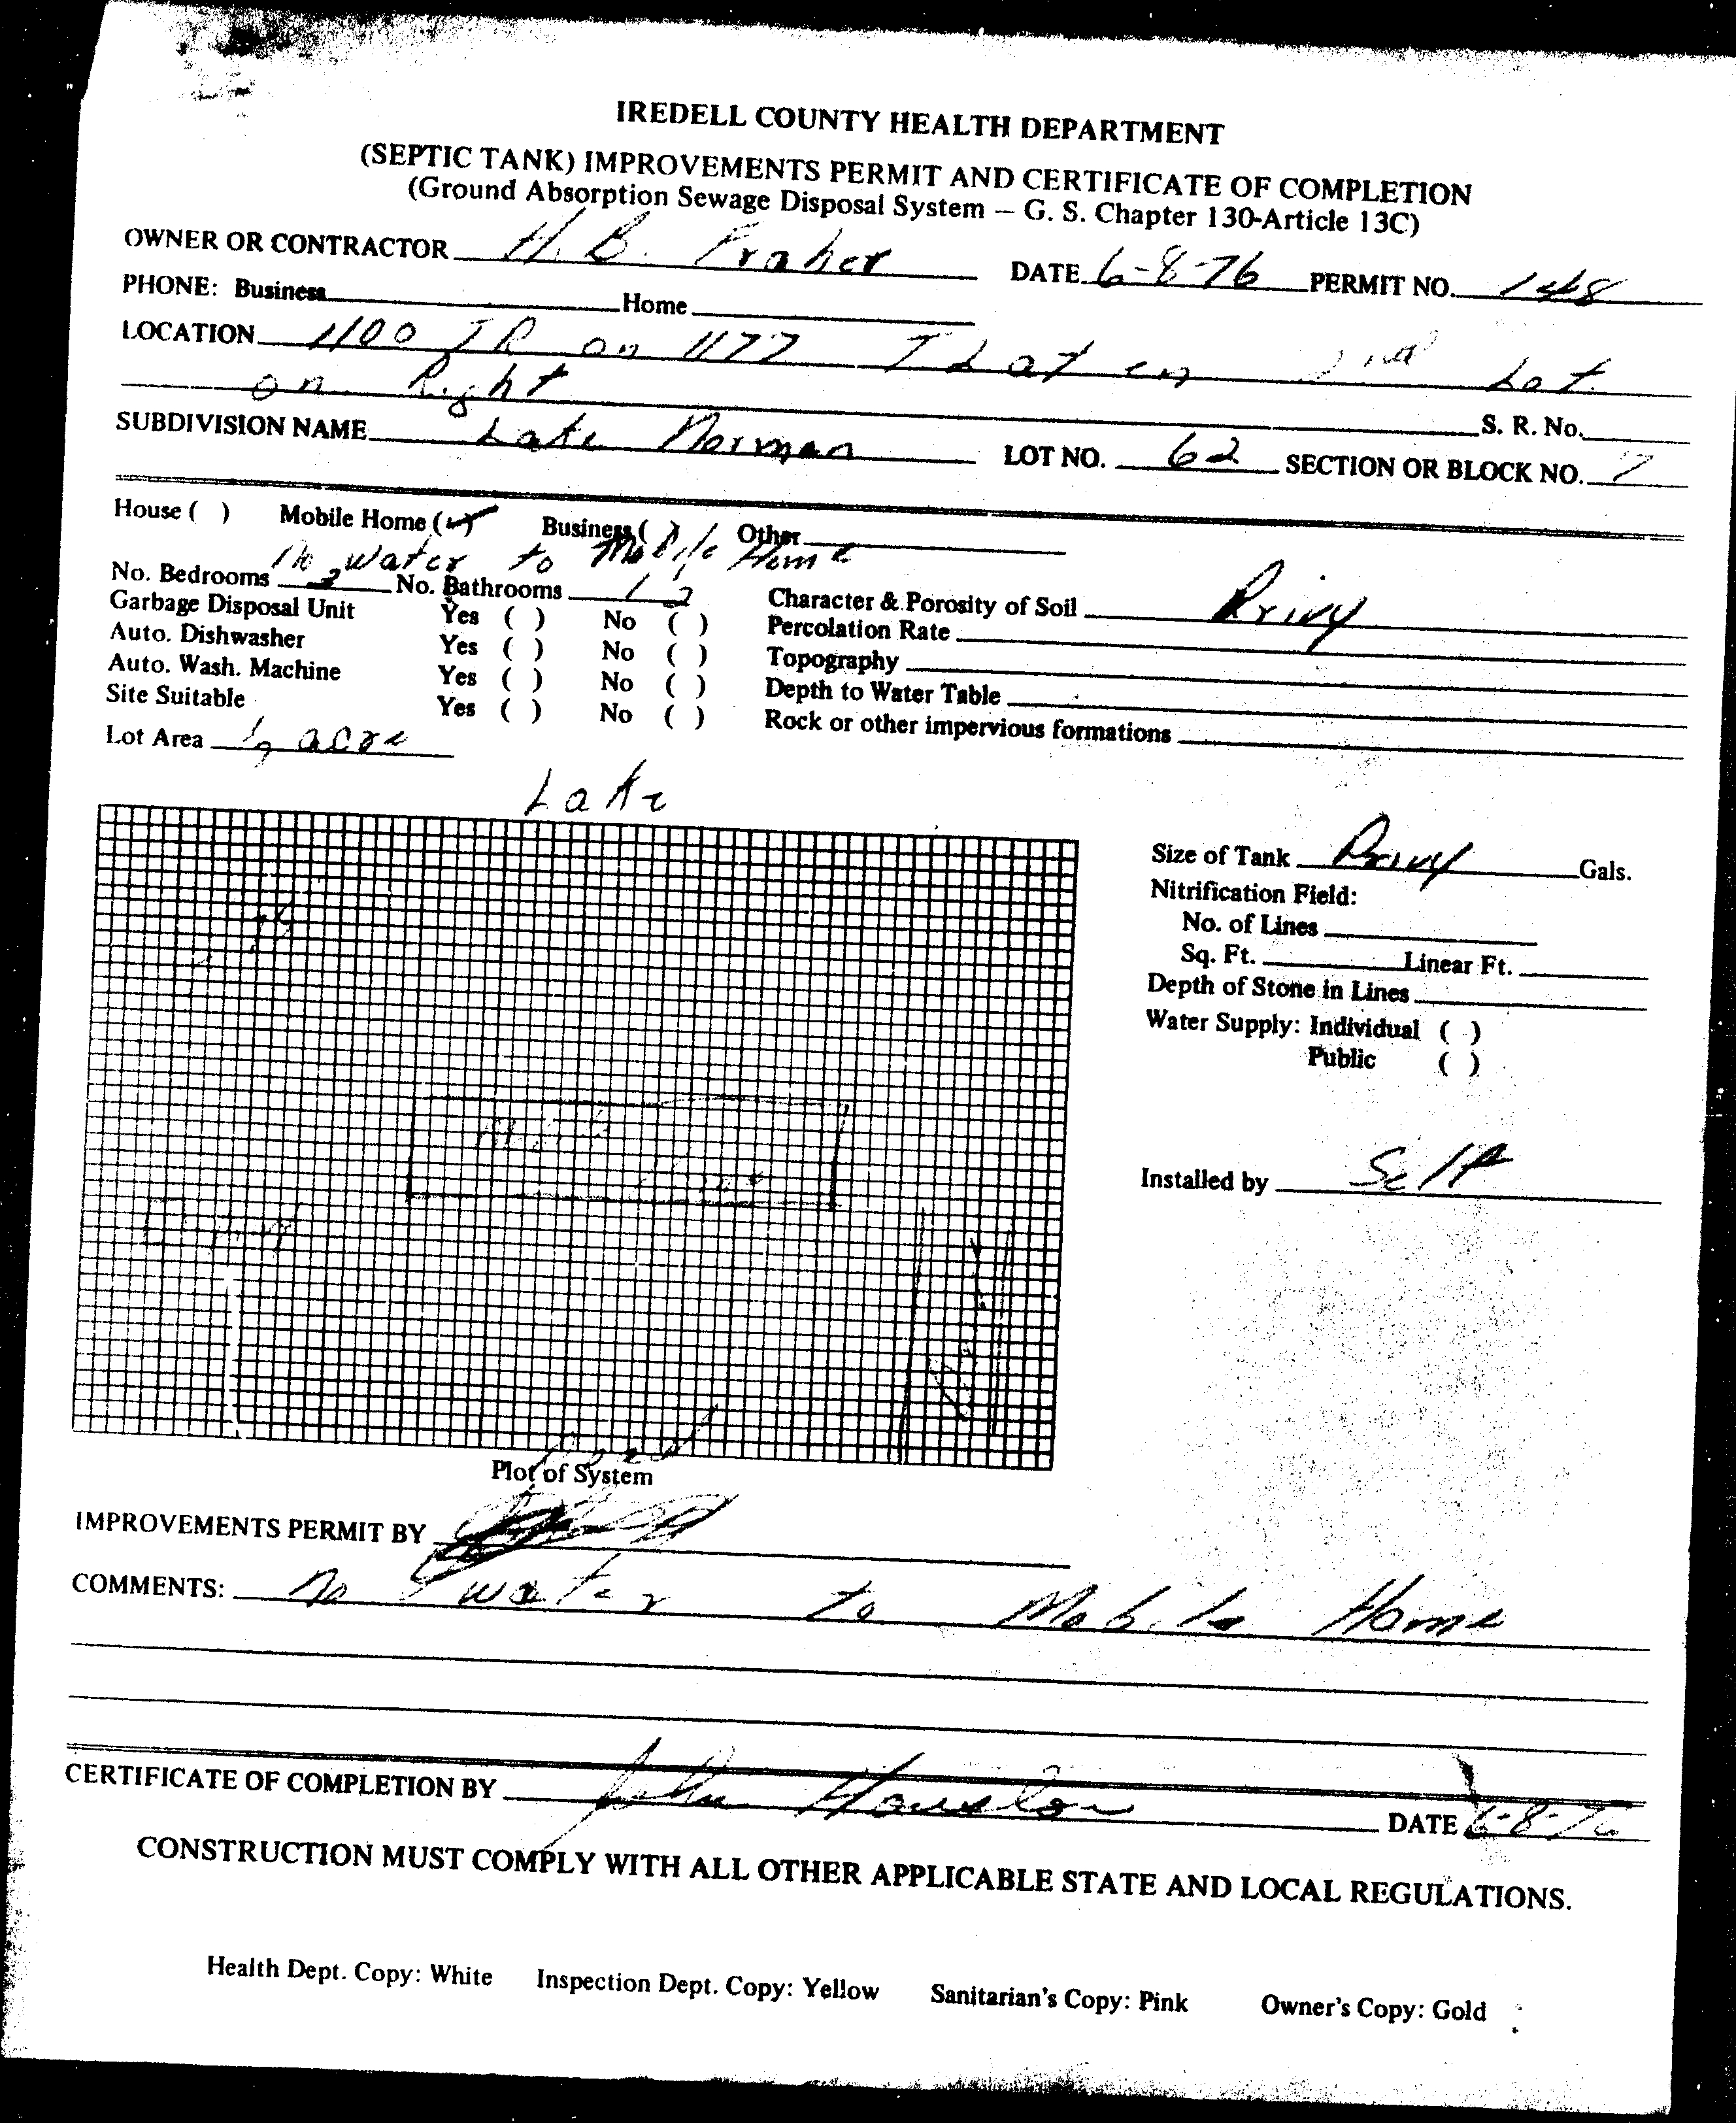 IREDELL COUNTY HEALTH DEPARTMENT
(SEPTIC TANK) IMPROVEMENTS PERMIT AND CERTIFICATE OF COMPLETION
(Ground Absorption Sewage Disposal System — G. S. Chapter 130-Article 13C)
OWNER OR CONTRACTOR H. B. Prather DATE 6-8-76 PERMIT NO. 148
PHONE: Business Home
LOCATION 1100 on 1177 Lot
on Right S. R. No.
SUBDIVISION NAME Lake Norman LOT NO. 62 SECTION OR BLOCK NO.
House ( ) Mobile Home (✓) Business ( ) Other
No water to Mobile Home
No. Bedrooms 2 No. Bathrooms Character & Porosity of Soil Privy
Garbage Disposal Unit Yes ( ) No ( ) Percolation Rate
Auto. Dishwasher Yes ( ) No ( ) Topography
Auto. Wash. Machine Yes ( ) No ( ) Depth to Water Table
Site Suitable Yes ( ) No ( ) Rock or other impervious formations
Lot Area 1/2 acre
Lake
Size of Tank Privy Gals.
Nitrification Field:
No. of Lines
Sq. Ft. Linear Ft.
Depth of Stone in Lines
Water Supply: Individual ( )
Public ( )
Installed by Self
Road
Plot of System
IMPROVEMENTS PERMIT BY
COMMENTS: No water to Mobile Home
CERTIFICATE OF COMPLETION BY John Houston DATE 6-8-76
CONSTRUCTION MUST COMPLY WITH ALL OTHER APPLICABLE STATE AND LOCAL REGULATIONS.
Health Dept. Copy: White Inspection Dept. Copy: Yellow Sanitarian's Copy: Pink Owner's Copy: Gold